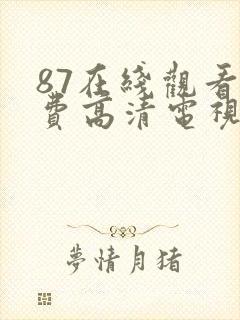 87在綫觀看
費高清電視
夢情月猪